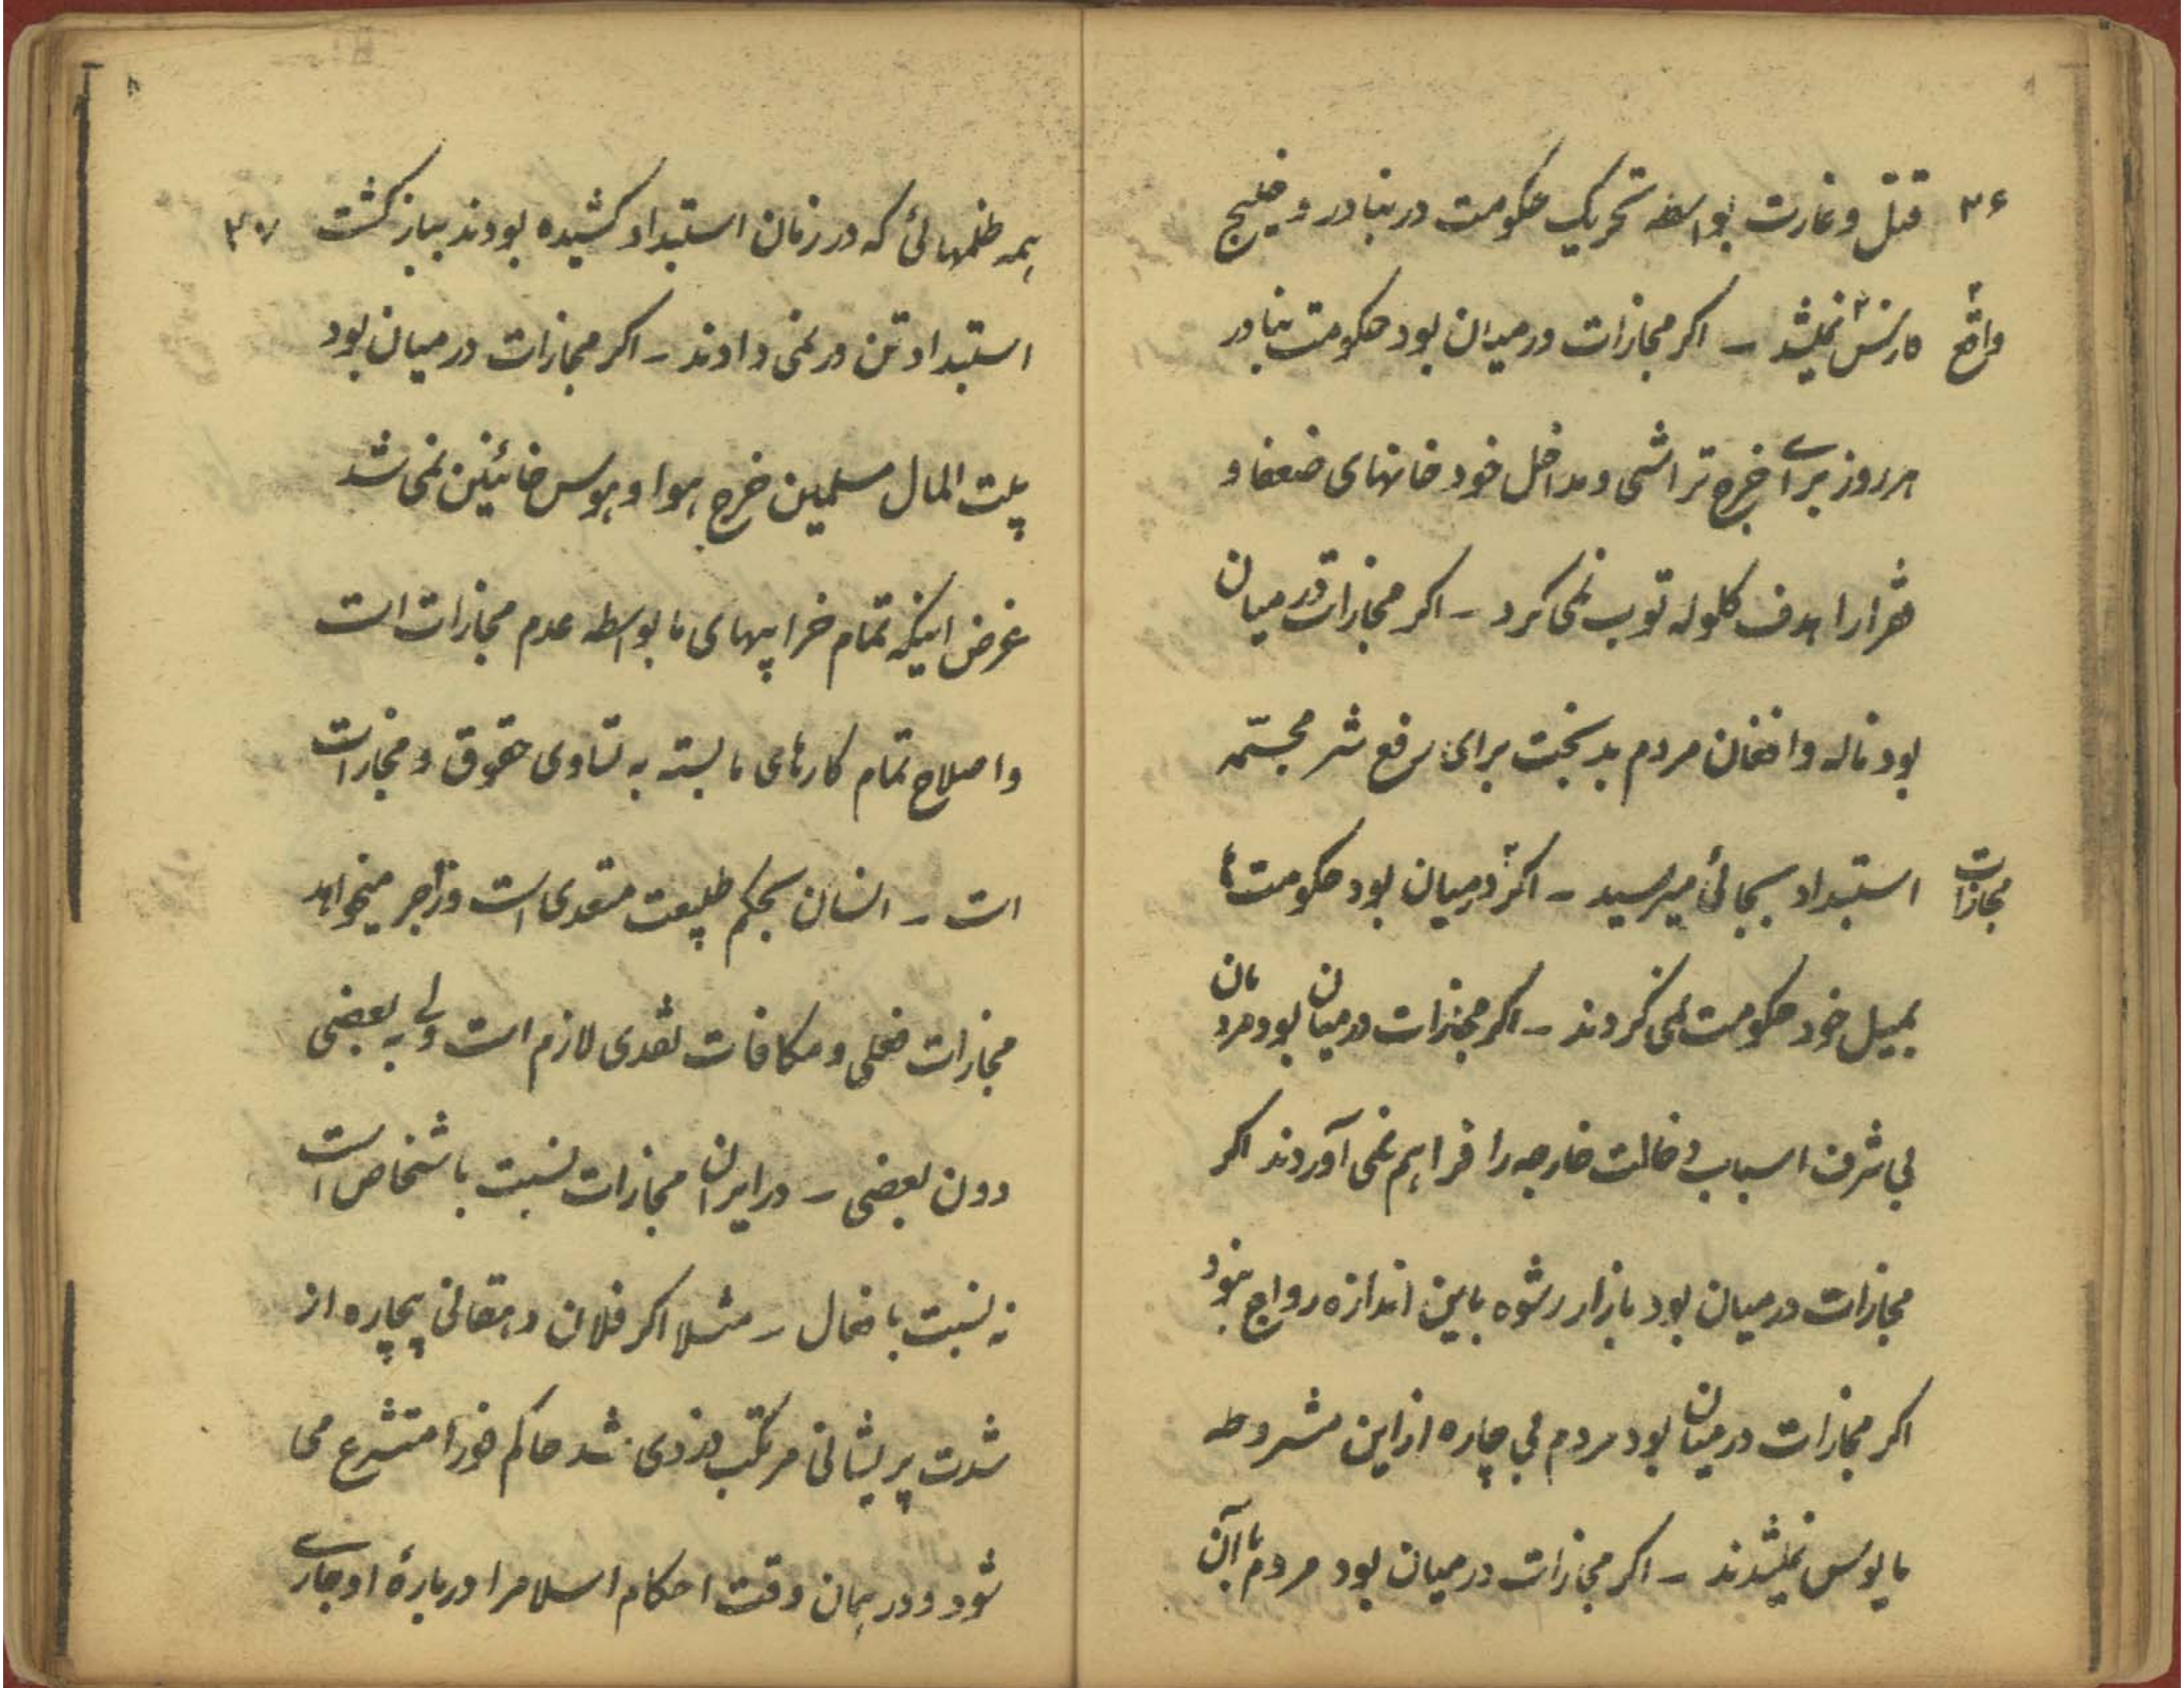 ۳۶ قتل و غارت بواسطه تحریک حکومت در بنادر و خلیج
فارس نمیشد – اکر مجازات در میدان بود حکومت بنادر
واقع
هر روز برای خرج تراشی و مداخل خود خانهای ضعفا و
فقرا را هدف کلوله توپ نمی کرد – اکر مجازات در میان
بود ناله و افغان مردم بدبخت برای رفع شر مجسّمه
استبداد بجائی میرسید – اکر در میان بود حکومت ها
مجازات
بمیل خود حکومت نمی کردند – اکر مجازات در میان بود مردمان
بی شرف اسباب دخالت خارجه را فراهم نمی آوردند اکر
مجازات در میان بود بازار رشوه باین اندازه رواج نبود
اکر مجازات در میان بود مردم بی چاره از این مشروطه
مایوس نمیشدند – اکر مجازات در میان بود مردم با آن
همه ظلمهائی که در زمان استبداد کشیده بودند ببازکشت ۳۷
استبداد تن در نمی دادند – اکر مجازات در میان بود
بیت المال مسلمین خرج هوا و هوس خائینن نمی شد
غرض اینکه تمام خرابیهای ما بواسطه عدم مجازات است
و اصلاح تمام کارهای ما بسته به تساوی حقوق و مجازات
است – انسان بحکم طبیعت متعدی است و زاجر میخواهد
مجازات فعلی و مکافات تعدی لازم است ولی به بعضی
دون بعضی – در ایران مجازات نسبت باشخاص است
نه نسبت بافعال – مثلا اکر فلان دهقانی بیچاره از
شدت پریشانی مرتکب دزدی شد حاکم فورا متشرع می
شود و در همان وقت احکام اسلام را در بارهٔ او جاری